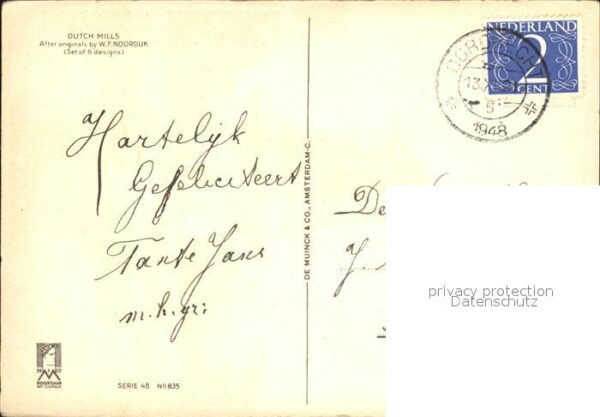 DUTCH MILLS
After originals by W. F. NOORDIJK
(Set of 6 designs)
NEDERLAND
2
CENT
1948
Hartelijk
Gefeliciteert
Tante Jans
m.h.gr:
DE MUINCK & CO., AMSTERDAM-C.
privacy protection
Datenschutz
SERIE 48 No 835